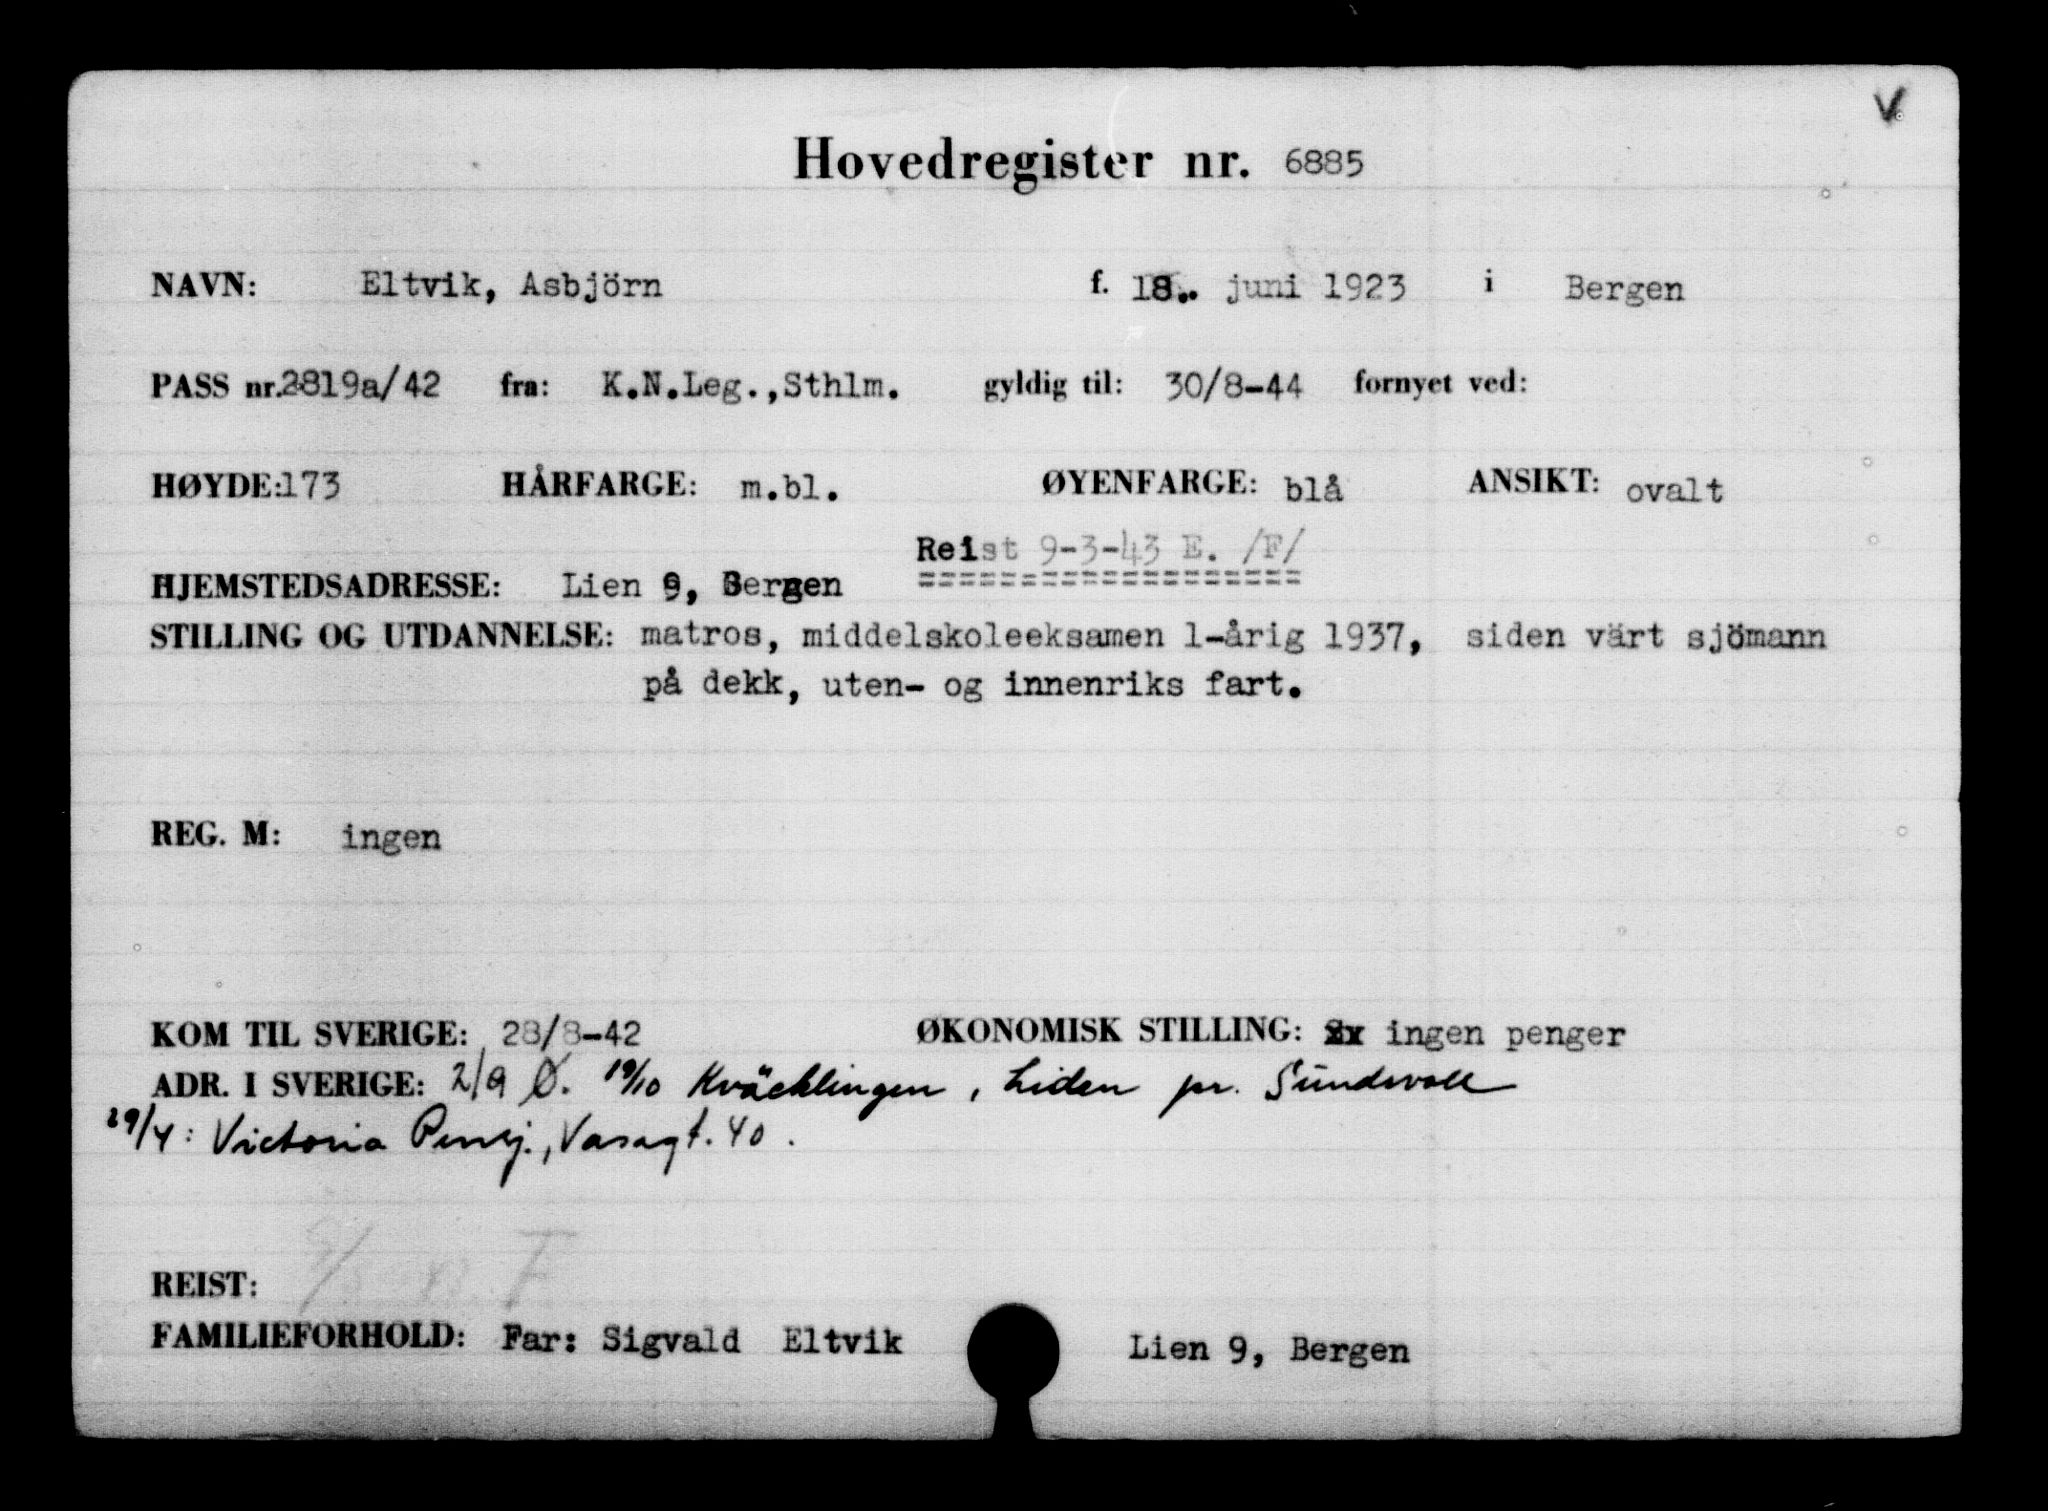 V
Hovedregister nr. 6885
NAVN: Eltvik, Asbjörn f. 18. juni 1923 i Bergen
PASS nr. 2819a/42 fra: K.N.Leg.,Sthlm. gyldig til: 30/8-44 fornyet ved:
HØYDE: 173 HÅRFARGE: m.bl. ØYENFARGE: blå ANSIKT: ovalt
Reist 9-3-43 E. /F/
HJEMSTEDSADRESSE: Lien 9, Bergen
STILLING OG UTDANNELSE: matros, middelskoleeksamen 1-årig 1937, siden värt sjömann
på dekk, uten- og innenriks fart.
REG. M: ingen
KOM TIL SVERIGE: 28/8-42 ØKONOMISK STILLING: ingen penger
ADR. I SVERIGE: 2/9 Ø. 19/10 Kväcklingen, Liden pr. Sundsvall
29/4: Victoria Pensj., Vasagt. 40.
REIST: 9/3 43 F
FAMILIEFORHOLD: Far: Sigvald Eltvik Lien 9, Bergen